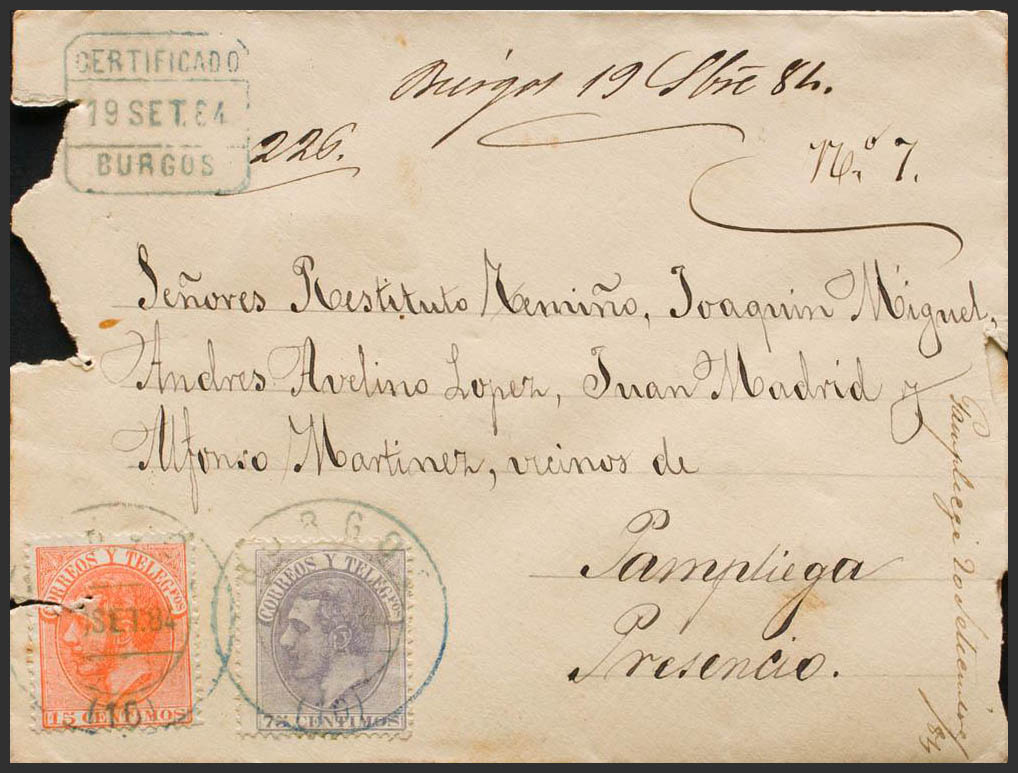 CERTIFICADO
19 SET. 84
BURGOS
Búrgos 19 Sbre 84.
226.
N.º 7.
Señores Restituto Temiño, Joaquin Miguel,
Andres Avelino Lopez, Juan Madrid y
Alfonso Martinez, vicinos de
Pampliega
Presencio.
Pampliega 20 Setiembre
/84
BURGOS
SET. 84
(16)
CORREOS Y TELEGFOS
15 CENTIMOS
BURGOS
(16)
CORREOS Y TELEGFOS
75 CENTIMOS